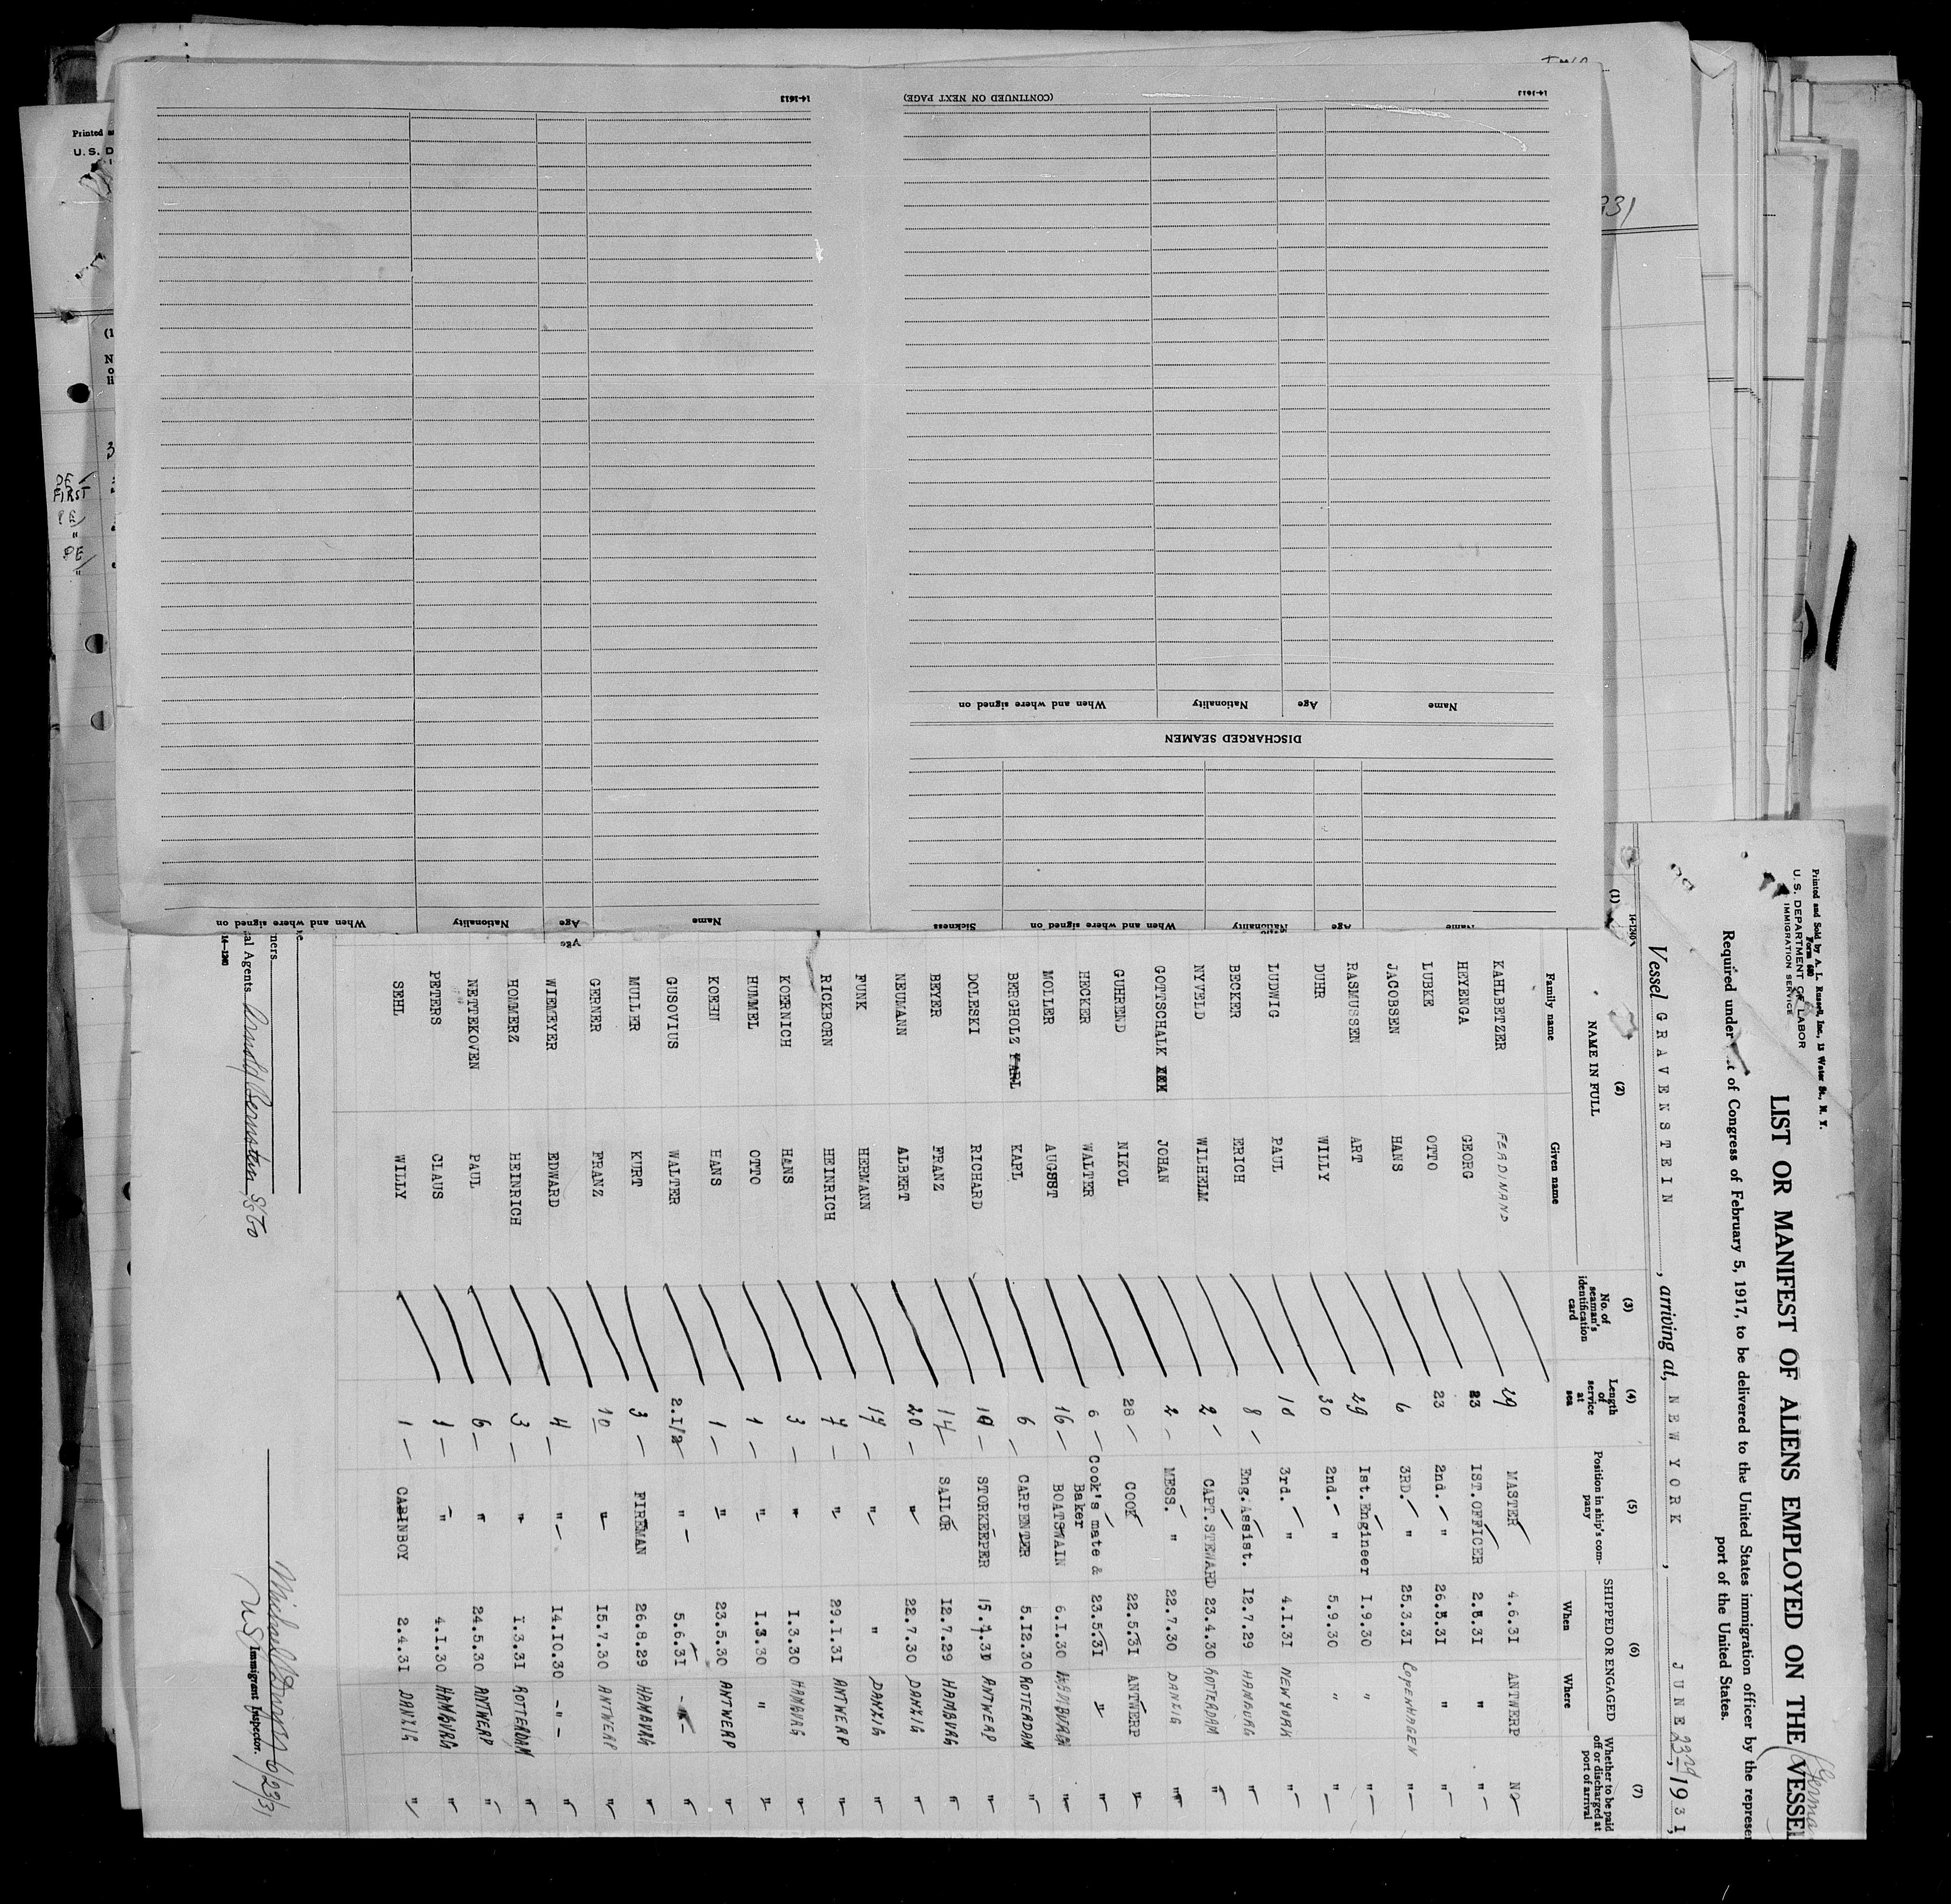 Printed and Sold by A. L. Russell, Inc., 13 Water St., N. Y.
Form 680
U. S. DEPARTMENT OF LABOR
IMMIGRATION SERVICE
LIST OR MANIFEST OF ALIENS EMPLOYED ON THE VESSEL
Required under of Congress of February 5, 1917, to be delivered to the United States immigration officer by the
port of the United States.
Vessel GRAVENSTEIN, arriving at, NEW YORK, JUNE 23rd, 1931,
14-1240
(1) (2) (3) (4) (5) (6) (7)
NAME IN FULL
Family name Given name
No. of seaman's identification card
Length of service at sea
Position in ship's company
SHIPPED OR ENGAGED
When Where
Whether to be paid off or discharged at port of arrival
KAHLBETZER FERDINAND 29 MASTER 4.6.31 ANTWERP NO
HEYENGA GEORG 23 IST.OFFICER 2.5.31 " "
LUBKE OTTO 23 2nd. " 26.5.31 " "
JACOBSEN HANS 6 3RD. " 25.3.31 COPENHAGEN "
RASMUSSEN ART 29 1st.Engineer I.9.30 " "
DUHR WILLY 30 2nd. " 5.9.30 " "
LUDWIG PAUL 10 3rd. " 4.I.3I NEW YORK "
BECKER ERICH 8 — Eng.Assist. I2.7.29 HAMBURG "
NYVELD WILHELM 2 — CAPT.STEWARD 23.4.30 ROTTERDAM "
GOTTSCHALK JOHAN 2 — MESS. " 22.7.30 DANZIG "
GUHREND NIKOL 28 — COOK 22.5.31 ANTWERP "
HECKER WALTER 6 — Cook's mate & Baker 23.5.3I " "
MOLLER AUGSBT 16 — BOATSWAIN 6.I.30 HAMBURG "
BERGHOLZ KARL KARL 6 — CARPENTER 5.I2.30 ROTTERDAM "
DOLESKI RICHARD 19 — STORKEEPER ANTWERP "
BEYER FRANZ 14 — SAILOR I2.7.29 HAMBURG "
NEUMANN ALBERT 20 — " 22.7.30 DANZIG "
FUNK HERMANN 17 — " " DANZIG "
RICKBORN HEINRICH 7 — " 29.I.3I ANTWERP "
KOERNICH HANS 3 — " I.3.30 HAMBURG "
HUMMEL OTTO 1 — " I.3.30 " "
KOEHN HANS 1 — " 23.5.30 ANTWERP "
GUSOVIUS WALTER 2.I/2 " — 5.6.3I - " - "
MULLER KURT 3 — FIREMAN 26.8.29 HAMBURG "
GERNER FRANZ 10 " I5.7.30 ANTWERP "
WIEMEYER EDWARD 4 — " — I4.I0.30 - " - "
HOMMERZ HEINRICH 3 — " I.3.3I ROTTERDAM "
NETTEKOVEN PAUL 6 — " 24.5.30 ANTWERP "
PETERS CLAUS 1 — " 4.I.30 HAMBURG "
SEHL WILLY 1 — CABINBOY 2.4.3I DANZIG "
al Agents Arnold Bernstein S/S Co
14—1240
6/23/31
U S Immigrant Inspector.
Name Age Nationality When and where signed on Sickness
DISCHARGED SEAMEN
Name Age Nationality When and where signed on
(CONTINUED ON NEXT PAGE)
14-1613
Name Age Nationality When and where signed on
14-1613
Age
Printed
U. S. D
DE
FIRST
"
DE
"
931